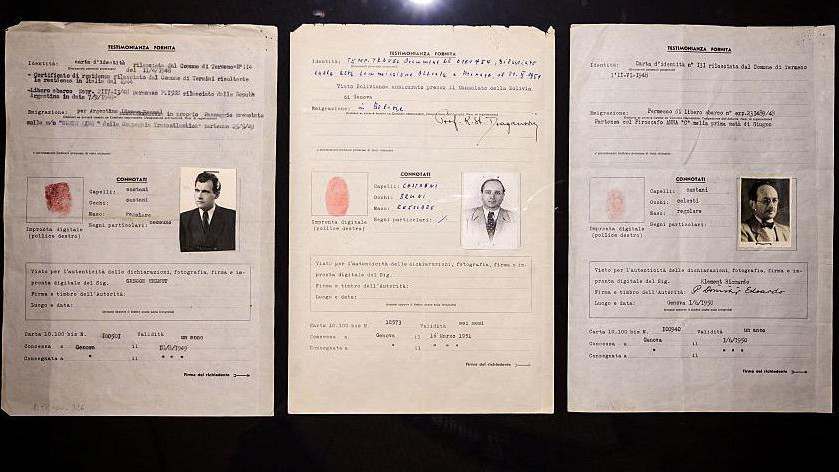 TESTIMONIANZA FORNITA
Identità: carta d'identità rilasciata dal Comune di Termeno N° 114
del 11/4/1948
- Certificato di residenza rilasciato dal Comune di Termini risultante
in residenza in Italia dal 1944
-Libero sbarco
Argentina in data
Emigrazione: per Argentina
in proprio Passaggio prenotato
sulla m/n "NORTH KING" della Compagnia Transatlantica- partenza 25/5/49
CONNOTATI
Capelli: castani
Occhi: castani
Naso: regolare
Segni particolari: nessuno
Impronta digitale
(pollice destro)
Visto per l'autenticità delle dichiarazioni, fotografia, firma e im-
pronta digitale del Sig.
GREGOR HELMUT
Firma e timbro dell'Autorità:
Luogo e data:
Carta 10.100 bis N. 100501 Validità un anno
Concessa a Genova il
Consegnata a " il "
Firma del richiedente
TESTIMONIANZA FORNITA
Identità:
Visto Boliviano assicurato presso il Consolato della Bolivia
di Genova
Emigrazione: in Bolivia
CONNOTATI
Capelli: CASTANI
Occhi: BRUNI
Naso: REGOLARE
Segni particolari: /
Impronta digitale
(pollice destro)
Visto per l'autenticità delle dichiarazioni, fotografia, firma e im-
pronta digitale del Sig.
Firma e timbro dell'Autorità:
Luogo e data:
Carta 10.100 bis N 18573 Validità sei mesi
Concessa a Genova il 16 Marzo 1951
Consegnata a " il " "
Firma del richiedente
TESTIMONIANZA FORNITA
Identità: Carta d'identità n° 131 rilasciata dal Comune di Termeno
l'11-VI-1948
Emigrazione: Permesso di libero sbarco n° exp.231489/48
Partenza col Piroscafo ANNA "C" nella prima metà di Giugno
CONNOTATI
Capelli: castani
Occhi: celesti
Naso: regolare
Segni particolari:
Impronta digitale
(pollice destro)
Visto per l'autenticità delle dichiarazioni, fotografia, firma e im-
pronta digitale del Sig. Klement Riccardo
Firma e timbro dell'Autorità: P. Edoardo
Luogo e data: Genova 1/6/1950
Carta 10.100 bis N. 100940 Validità un anno
Concessa a Genova il 1/6/1950
Consegnata a " il "
Firma del richiedente